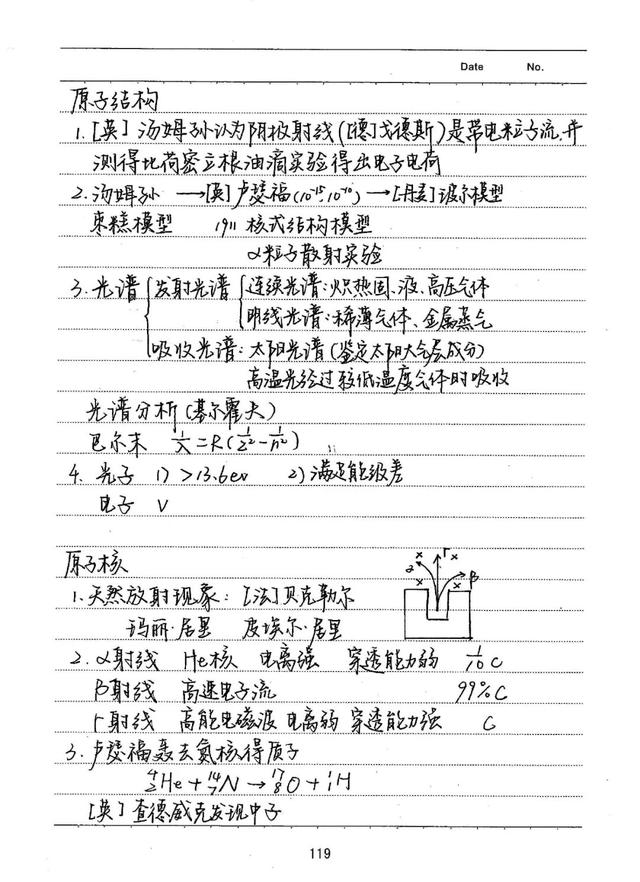 Date No.
原子结构
1.[英]汤姆孙认为阴极射线([德]戈德斯)是带电粒子流,并
测得比荷密立根油滴实验得出电子电荷
2.汤姆孙 →[英]卢瑟福(10⁻¹⁵,10⁻¹⁰)→[丹麦]玻尔模型
枣糕模型 1911 核式结构模型
α粒子散射实验
3.光谱 发射光谱 连续光谱:炽热固、液、高压气体
明线光谱:稀薄气体、金属蒸气
吸收光谱:太阳光谱(鉴定太阳大气层成分)
高温光经过较低温度气体时吸收
光谱分析(基尔霍夫)
巴尔末 1/λ=R(1/2²-1/n²)
4.光子 1)>13.6ev 2)满足能级差
电子 V
原子核
α × r × × β ×
1.天然放射现象:[法]贝克勒尔
玛丽·居里 皮埃尔·居里
2.α射线 He核 电离强 穿透能力弱 1/10 C
β射线 高速电子流 99%C
r射线 高能电磁波 电离弱 穿透能力强 C
3.卢瑟福轰击氮核得质子
⁴₂He+¹⁴₇N→¹⁷₈O+¹₁H
[英]查德威克发现中子
119